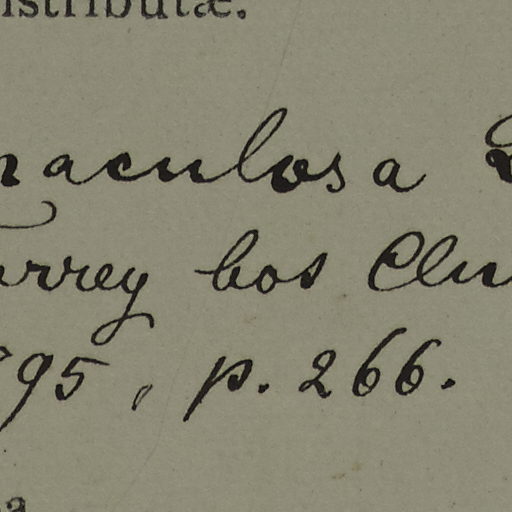 istributæ.
maculosa
urrey bos Clu
95, p. 266.